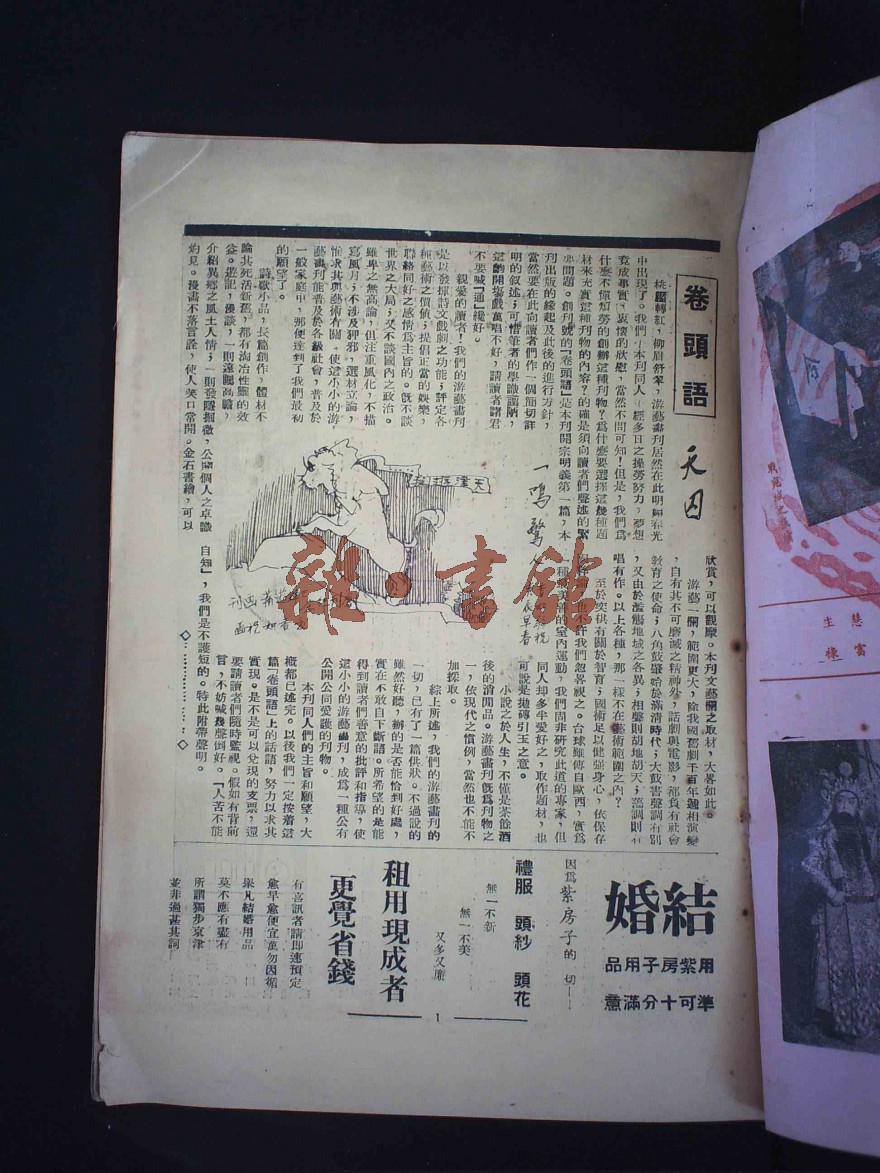 卷頭語
天囚
桃靨轉紅,柳眉舒翠,游藝畫刊居然在此明媚春光
中出現了。我們——本刊同人——經多日之操勞努力,夢想
竟成事實,衷懷的欣慰,當然不問可知!但是,我們爲
什麽不憚煩勞的創辦這種刊物?爲什麽要選擇這幾種題
材來充實這種刊物的內容?的確是須向讀者們聲述的緊
要問題。創刊號的「卷頭語」是本刊開宗明義第一篇,本
刊出版的緣起及此後的進行方針,
當然要在此向讀者們作一個簡切詳
明的叙述;可惜筆者的學識譾陋,
這齣開塲戲萬唱不好,請讀者諸君
不要喊「通」纔好。
親愛的讀者!我們的游藝畫刊
是以發揮詩文戲劇之功能;評定各
種藝術之價値;提倡正當的娛樂,
聯絡同好之感情爲主旨的。旣不談
世界之大局;又不談國內之政治。
雖卑之無高論,但注重風化,不描
寫風月;不涉及狎邪,選材立論,
惟求其與藝術有關。使這小小的游
藝畫刊能普及於各級社會,普及於
一般家庭中,那便達到了我們最初
的願望了。
詩歌小品,長篇創作,體材不
論其死活新舊,都有陶冶性靈的效
益。遊記,漫談,一則遠矚高瞻,
介紹異鄉之風土人情;一則發隱掘微,公開個人之卓識
灼見。漫畫不落言詮,使人笑口常開。金石書繪,可以
欣賞,可以觀摩。本刊文藝欄之取材,大畧如此。
游藝一欄,範圍更大,除我國舊劇千百年遞相演變
,自有其不可磨滅之精神外,話劇與電影,都負有社會
教育之使命;八角鼓肇始於滿清時代;大鼓書聲調有別
,又由於濫觴地域之各異;相聲則胡地胡天,蓮調則有
唱有作。以上各種,那一樣不在藝術範圍之內?
至於奕棋有關於智育;國術足以健強身心,依保存
也不許我們忽畧視之。台球雖傳自歐西,實爲
一種優美善的室內運動,我們固非研究此道的專家,但
同人却多半愛好之,取作題材,也
可說是拋磚引玉之意。
小說之於人生,不僅是茶餘酒
後的消閒品。游藝畫刊旣爲刊物之
一,依現代之慣例,當然也不能不
加採取。
綜上所述,我們的游藝畫刊的
一切,已有了一篇供狀。不過說的
雖然好聽,辦的是否能恰到好處,
實在不敢自下斷語。所希望的是能
得到讀者們善意的批評和指導,使
這小小的游藝畫刊,成爲一種公有
公開公同愛護的刊物。
本刊同人們的主旨和願望,大
槪都已述完。以後我們一定按着這
篇「卷頭語」上的話語,努力以求其
實現。是不是可以兌現的支票,還
要請讀者們隨時監視。假如有背前
言,不妨喊幾聲倒好。「人苦不能
自知」,我們是不護短的。特此附帶聲明。
一鳴驚
早春
雜·書館
結婚
用紫房子用品
準可十分滿意
因爲紫房子的一切——
禮服 頭紗 頭花
無一不新
無一不美
又多又廉
租用現成者
更覺省錢
有喜訊者請即速預定
愈早愈便宜萬勿因循
舉凡結婚用品
莫不應有盡有
所謂獨步京津
並非過甚其詞
1
慧生
富棟